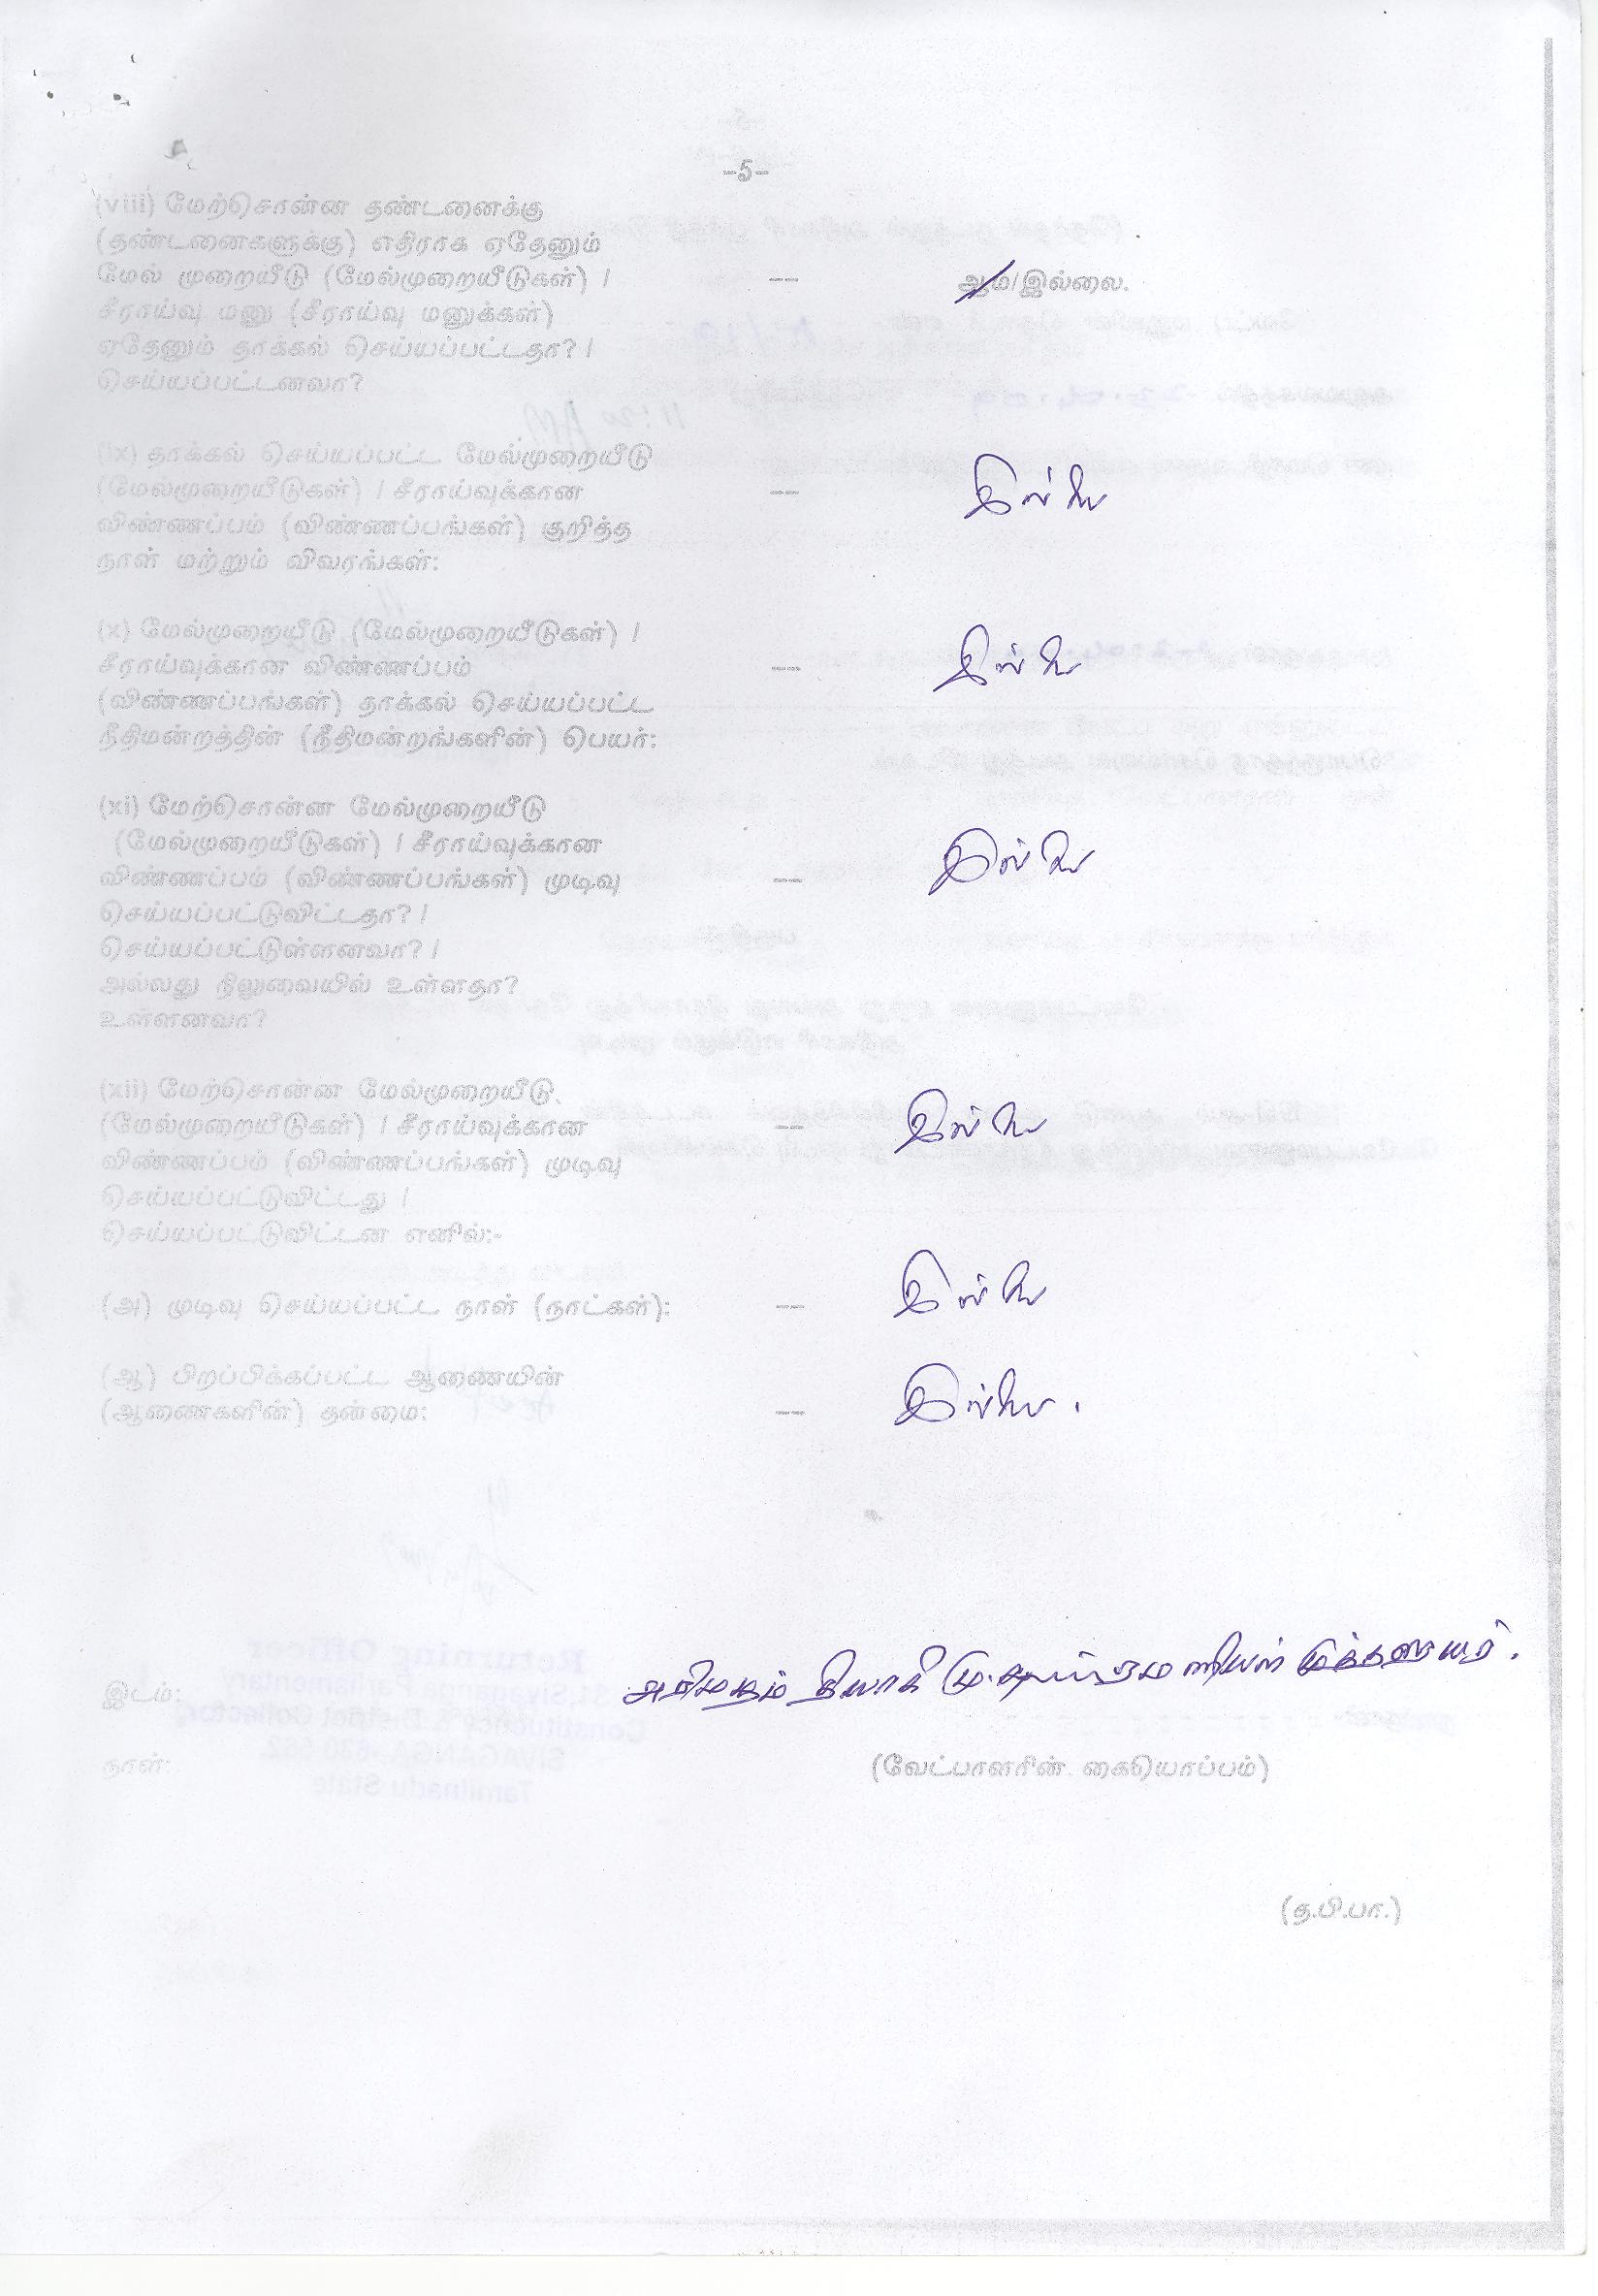 -5-
(viii) மேற்சொன்ன தண்டனைக்கு
(தண்டனைகளுக்கு) எதிராக ஏதேனும்
மேல் முறையீடு (மேல்முறையீடுகள்) / -- ஆம்/இல்லை.
சீராய்வு மனு (சீராய்வு மனுக்கள்)
ஏதேனும் தாக்கல் செய்யப்பட்டதா? /
செய்யப்பட்டனவா?
(ix) தாக்கல் செய்யப்பட்ட மேல்முறையீடு
(மேல்முறையீடுகள்) / சீராய்வுக்கான -- இல்லை
விண்ணப்பம் (விண்ணப்பங்கள்) குறித்த
நாள் மற்றும் விவரங்கள்:
(x) மேல்முறையீடு (மேல்முறையீடுகள்) /
சீராய்வுக்கான விண்ணப்பம் -- இல்லை
(விண்ணப்பங்கள்) தாக்கல் செய்யப்பட்ட
நீதிமன்றத்தின் (நீதிமன்றங்களின்) பெயர்:
(xi) மேற்சொன்ன மேல்முறையீடு
(மேல்முறையீடுகள்) / சீராய்வுக்கான
விண்ணப்பம் (விண்ணப்பங்கள்) முடிவு -- இல்லை
செய்யப்பட்டுவிட்டதா? /
செய்யப்பட்டுள்ளனவா? /
அல்லது நிலுவையில் உள்ளதா?
உள்ளனவா?
(xii) மேற்சொன்ன மேல்முறையீடு.
(மேல்முறையீடுகள்) / சீராய்வுக்கான -- இல்லை
விண்ணப்பம் (விண்ணப்பங்கள்) முடிவு
செய்யப்பட்டுவிட்டது /
செய்யப்பட்டுவிட்டன எனில்:-
(அ) முடிவு செய்யப்பட்ட நாள் (நாட்கள்): -- இல்லை
(ஆ) பிறப்பிக்கப்பட்ட ஆணையின்
(ஆணைகளின்) தன்மை: -- இல்லை.
இடம்: தியாகி மு. முத்தரையர்.
நாள்: (வேட்பாளரின் கையொப்பம்)
(த.பி.பா.)